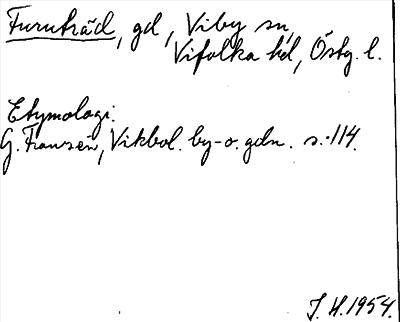 Furuträd, gd, Viby sn,
Vifolka hd, Östg. l.
Etymologi.
G. Franzén, Vikbol. by- o. gdn. s. 114.
J. H. 1954.